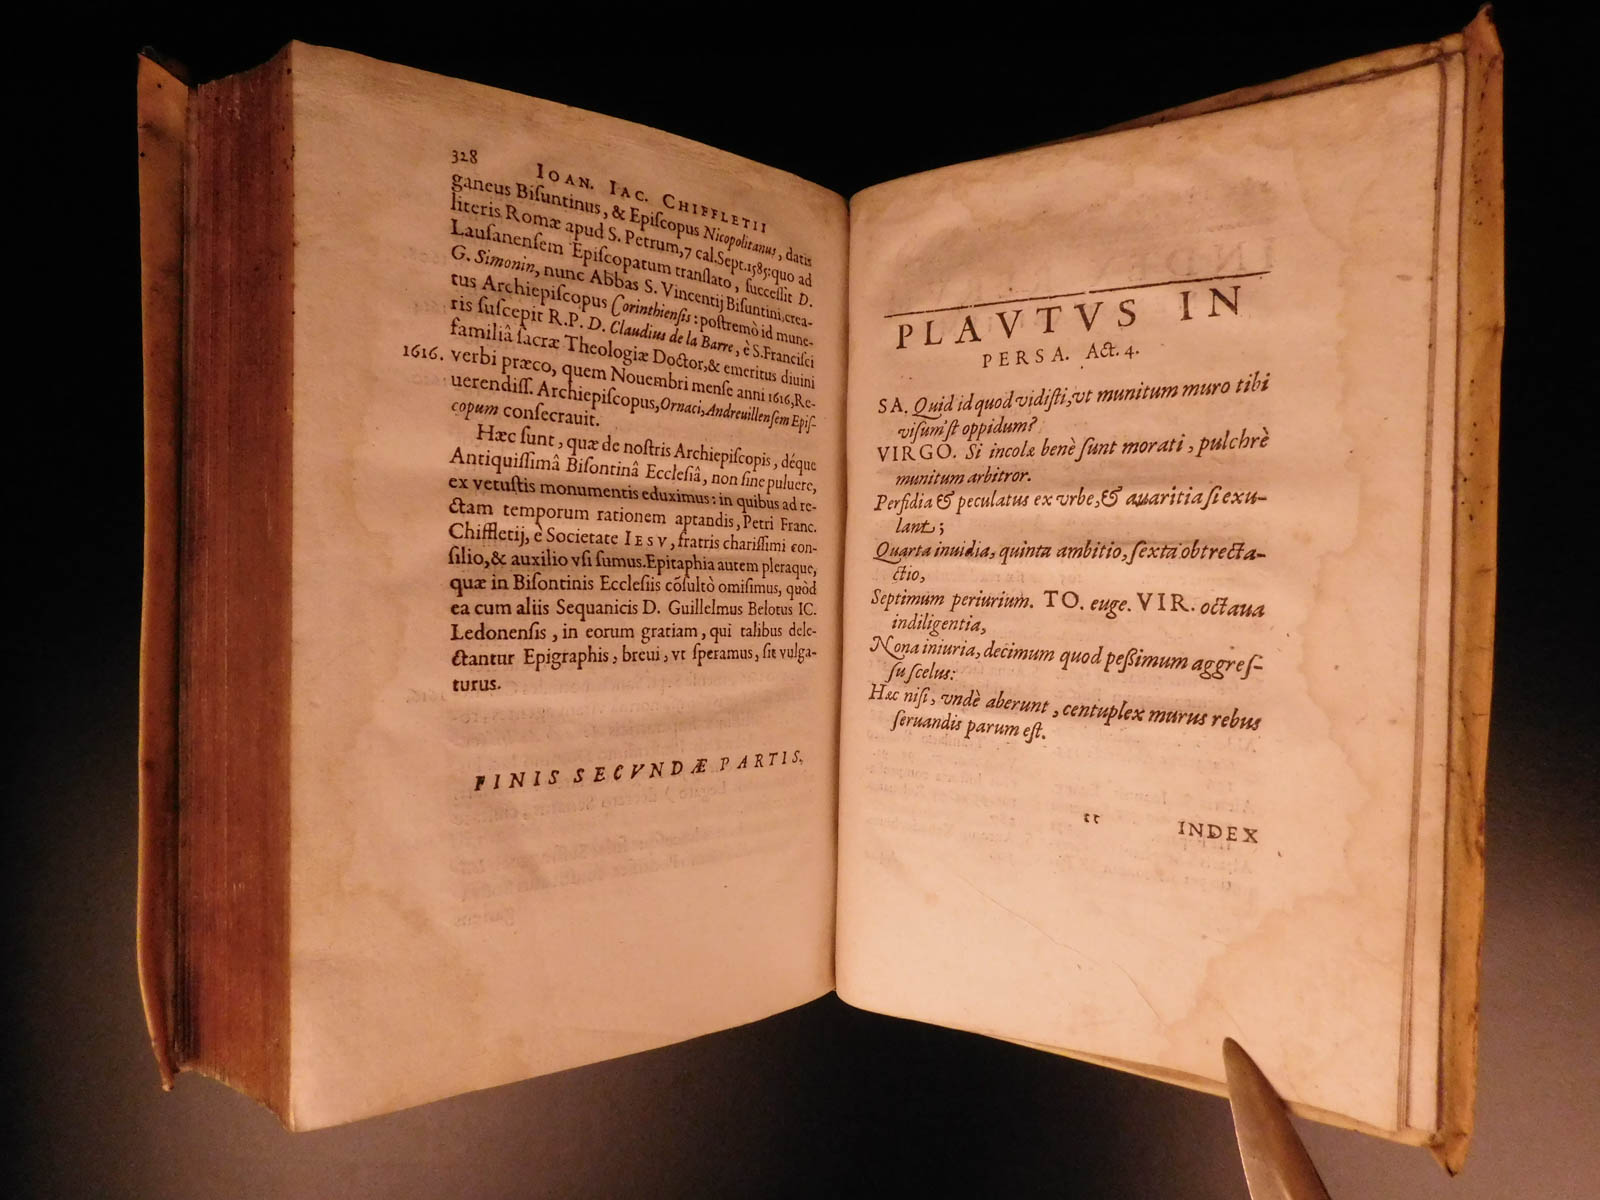 328
IOAN. IAC. CHIFFLETII
ganeus Biſuntinus, & Epiſcopus Nicopolitanus, datis
literis Romæ apud S. Petrum, 7 cal. Sept. 1585: quo ad
Lauſanenſem Epiſcopatum tranſlato, ſucceſſit D.
G. Simonin, nunc Abbas S. Vincentij Biſuntini, crea-
tus Archiepiſcopus Corinthienſis: poſtremò id mune-
ris ſuſcepit R. P. D. Claudius de la Barre, è S. Franciſci
familiâ ſacræ Theologiæ Doctor, & emeritus diuini
1616. verbi præco, quem Nouembri menſe anni 1616, Re-
uerendiſſ. Archiepiſcopus, Ornaci, Andreuillenſem Epiſ-
copum conſecrauit.
Hæc ſunt, quæ de noſtris Archiepiſcopis, déque
Antiquiſſimâ Biſontinâ Eccleſiâ, non ſine puluere,
ex vetuſtis monumentis eduximus: in quibus ad re-
ctam temporum rationem aptandis, Petri Franc.
Chiffletij, è Societate IESV, fratris chariſſimi con-
ſilio, & auxilio vſi ſumus. Epitaphia autem pleraque,
quæ in Biſontinis Eccleſiis cõſultò omiſimus, quòd
ea cum aliis Sequanicis D. Guillelmus Belotus IC.
Ledonenſis, in eorum gratiam, qui talibus dele-
ctantur Epigraphis, breui, vt ſperamus, ſit vulga-
turus.
FINIS SECVNDÆ PARTIS.
PLAVTVS IN
PERSA. Act. 4.
SA. Quid id quod vidiſti, vt munitum muro tibi
viſum'ſt oppidum?
VIRGO. Si incolæ benè ſunt morati, pulchrè
munitum arbitror.
Perfidia & peculatus ex vrbe, & auaritia ſi exu-
lant;
Quarta inuidia, quinta ambitio, ſexta obtrecta-
ctio,
Septimum periurium. TO. euge. VIR. octaua
indiligentia,
Nona iniuria, decimum quod peßimum aggreſ-
ſu ſcelus:
Hæc niſi, vndè aberunt, centuplex murus rebus
ſeruandis parum eſt.
tt INDEX